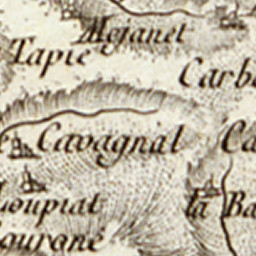 Mejanet
Tapie
Carb
Cavagnal
Ca
Loupiat
la Ba
Couroné